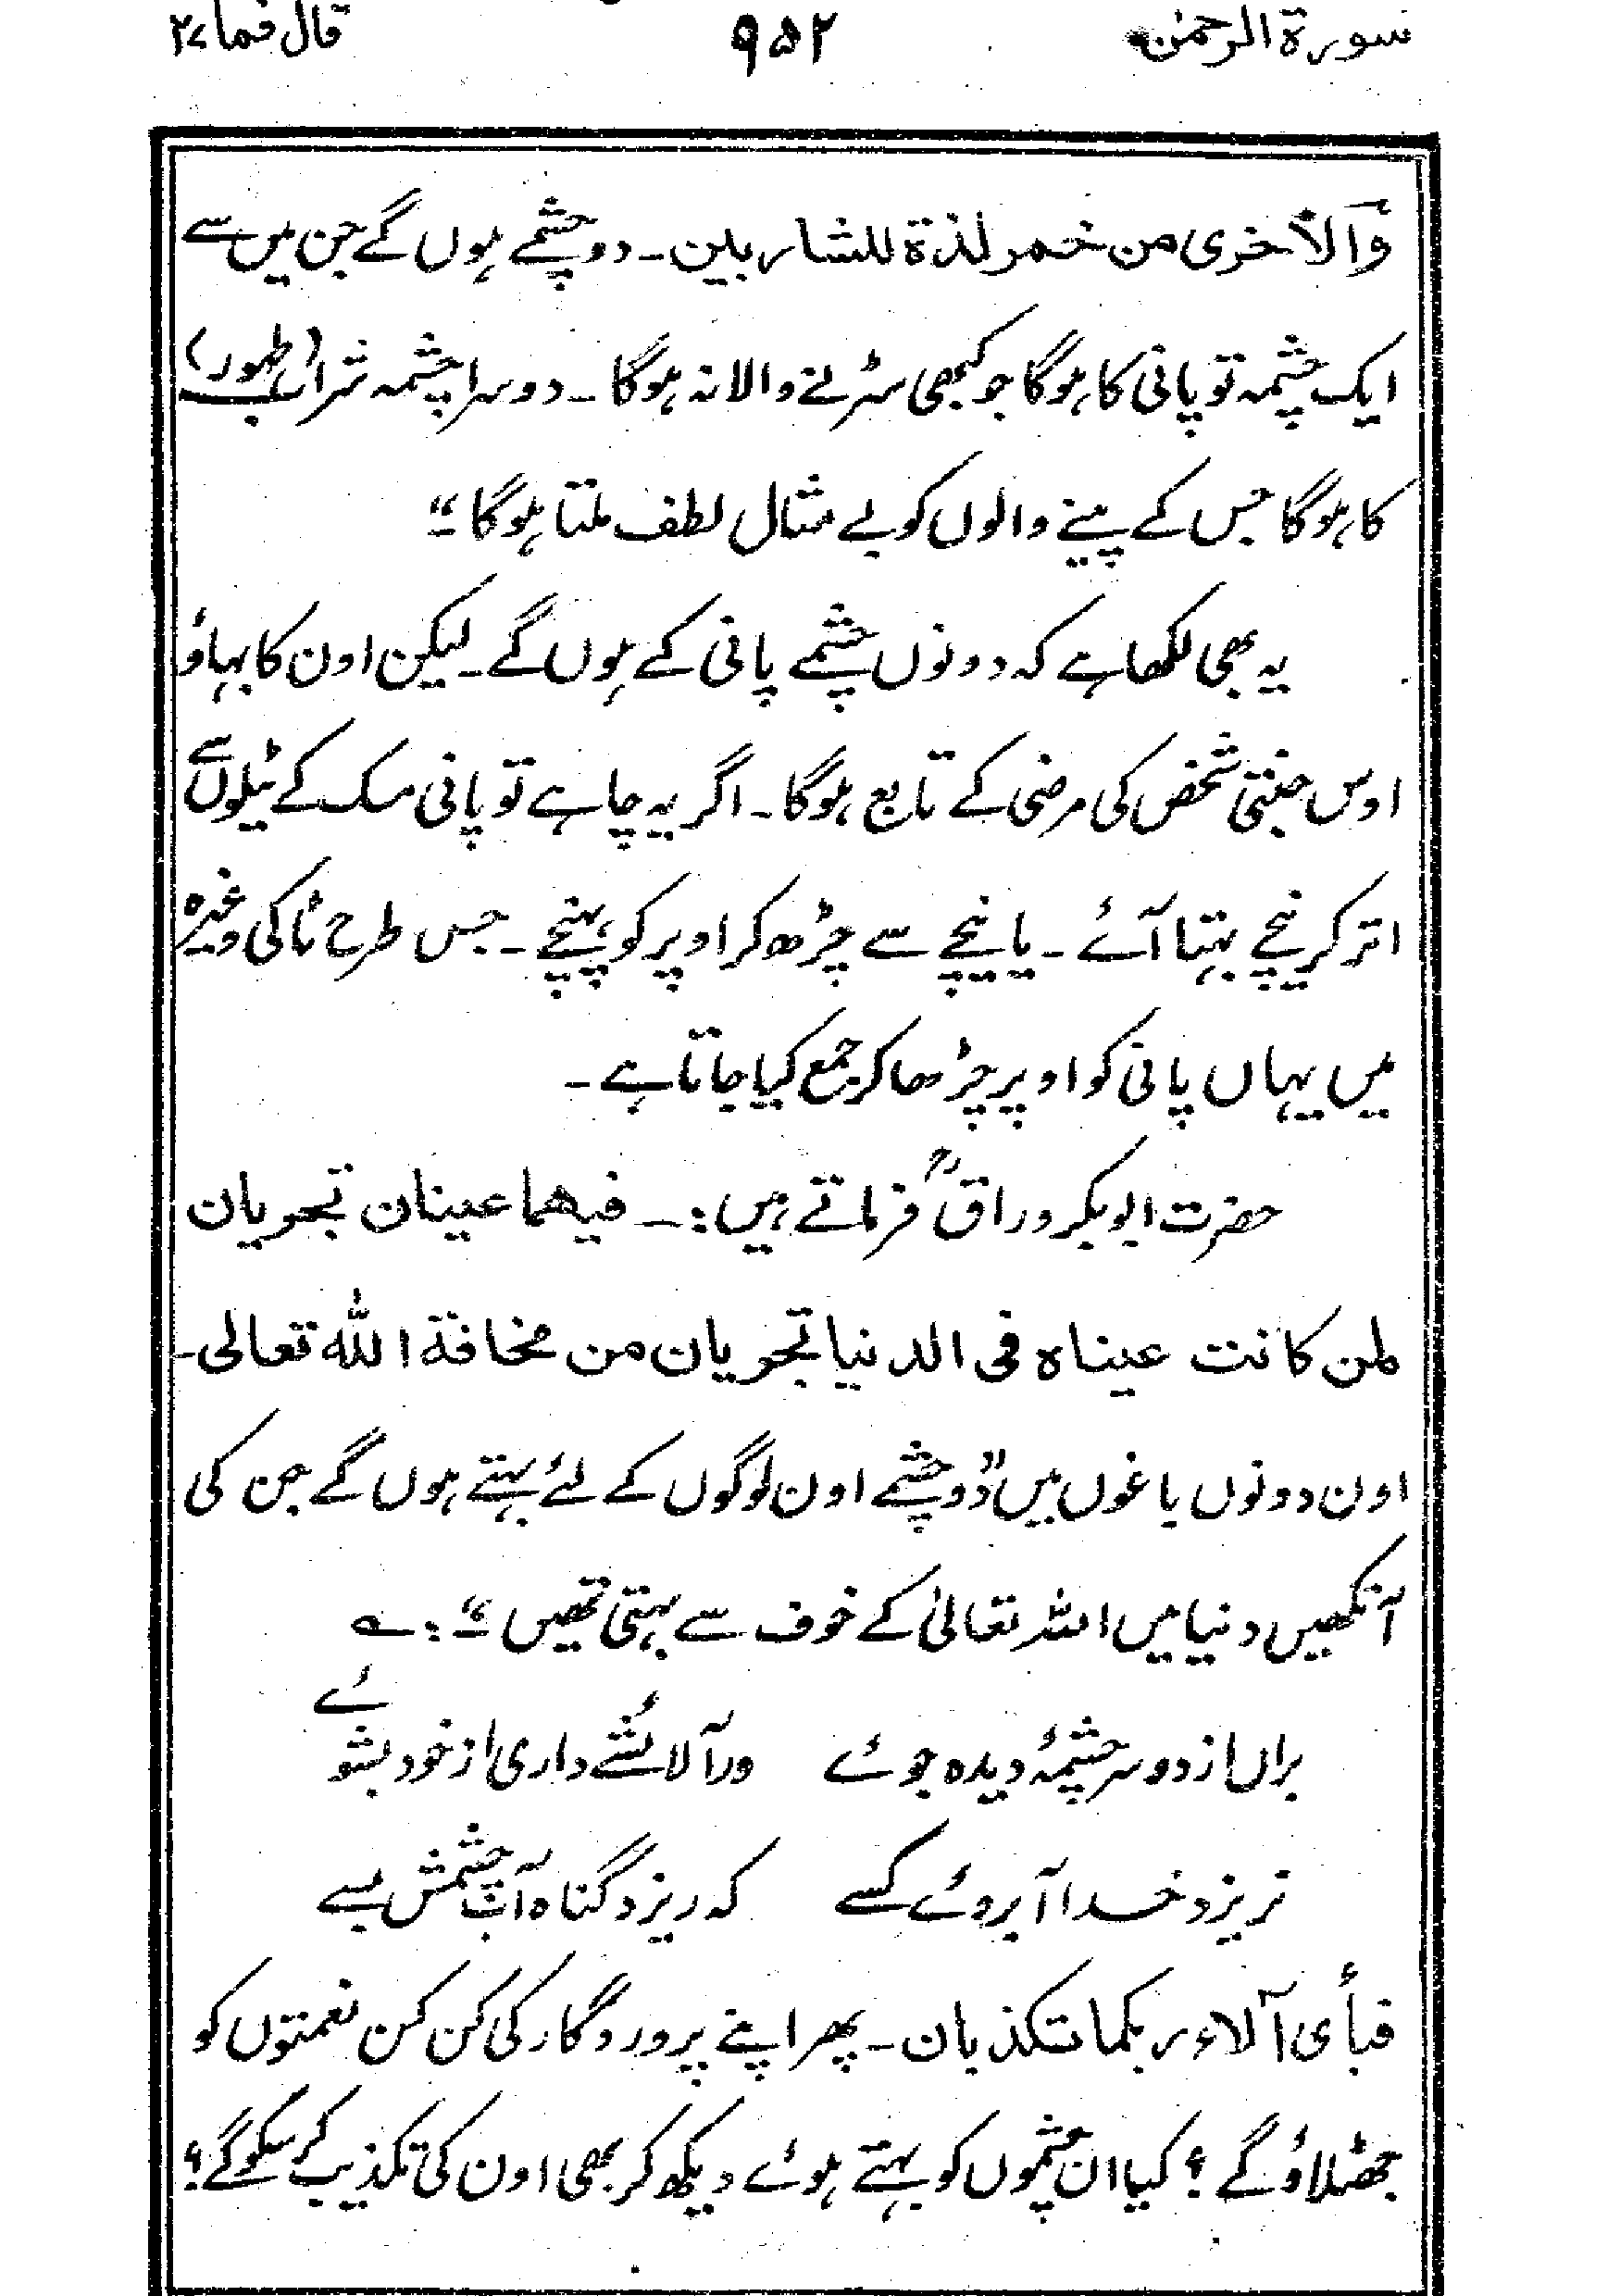 سورۃ الرحمن ۹۵۲ قال فما ۲۷
والاخری من خمر لذۃ للشاربین ۔ دو چشمے ہوں گے جن میں سے
ایک چشمہ تو پانی کا ہوگا جو کبھی سڑنے والا نہ ہوگا ۔ دوسرا چشمہ شراب (طہور)
کا ہوگا جس کے پینے والوں کو بے مثال لطف ملتا ہوگا ‘‘۔
یہ بھی لکھا ہے کہ دونوں چشمے پانی کے ہوں گے ۔ لیکن اون کا بہاؤ
اوس جنتی شخص کی مرضی کے تابع ہوگا ۔ اگر یہ چاہے تو پانی مسک کے ٹیلوں سے
اتر کر نیچے بہتا آئے ۔ یا نیچے سے چڑھ کر اوپر کو پہنچے ۔ جس طرح ٹاکی وغیرہ
میں یہاں پانی کو اوپر چڑھا کر جمع کیا جاتا ہے ۔
حضرت ابوبکر وراقؒ فرماتے ہیں :۔ فیھما عینان تجریان
لمن کانت عیناہ فی الدنیا تجریان من مخافۃ اللہ تعالی ۔
اون دونوں باغوں میں ’’دو چشمے اون لوگوں کے لئے بہتے ہوں گے جن کی
آنکھیں دنیا میں اللہ تعالیٰ کے خوف سے بہتی تھیں ‘‘۔ : ؎
براں از دو سرچشمۂ دیدہ جوئے ورآلائشے داری از خود بشوئے
نریزد خدا آبروئے کسے کہ ریزد گناہ آب چشمش بسے
فبأی آلاء ربکما تکذبان ۔ پھر اپنے پروردگار کی کن کن نعمتوں کو
جھٹلاؤ گے ؟ کیا ان چشموں کو بہتے ہوئے دیکھ کر بھی اون کی تکذیب کر سکو گے ؟